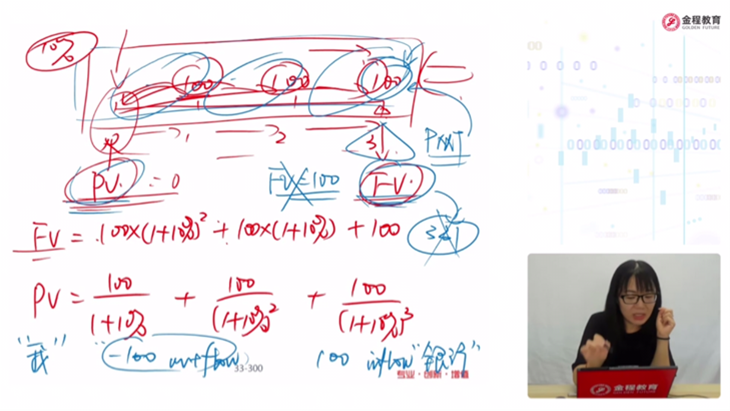 金程教育
GOLDEN FUTURE
10%
100 100 100
1 2 3
PMT
PV. = 0 FV=100 FV.
331
FV = 100×(1+10%)² + 100×(1+10%) + 100
PV = 100/(1+10%) + 100/(1+10%)² + 100/(1+10%)³
"我" -100 outflow 100 inflow "银行"
33-300
专业·创新·增值
金程教育